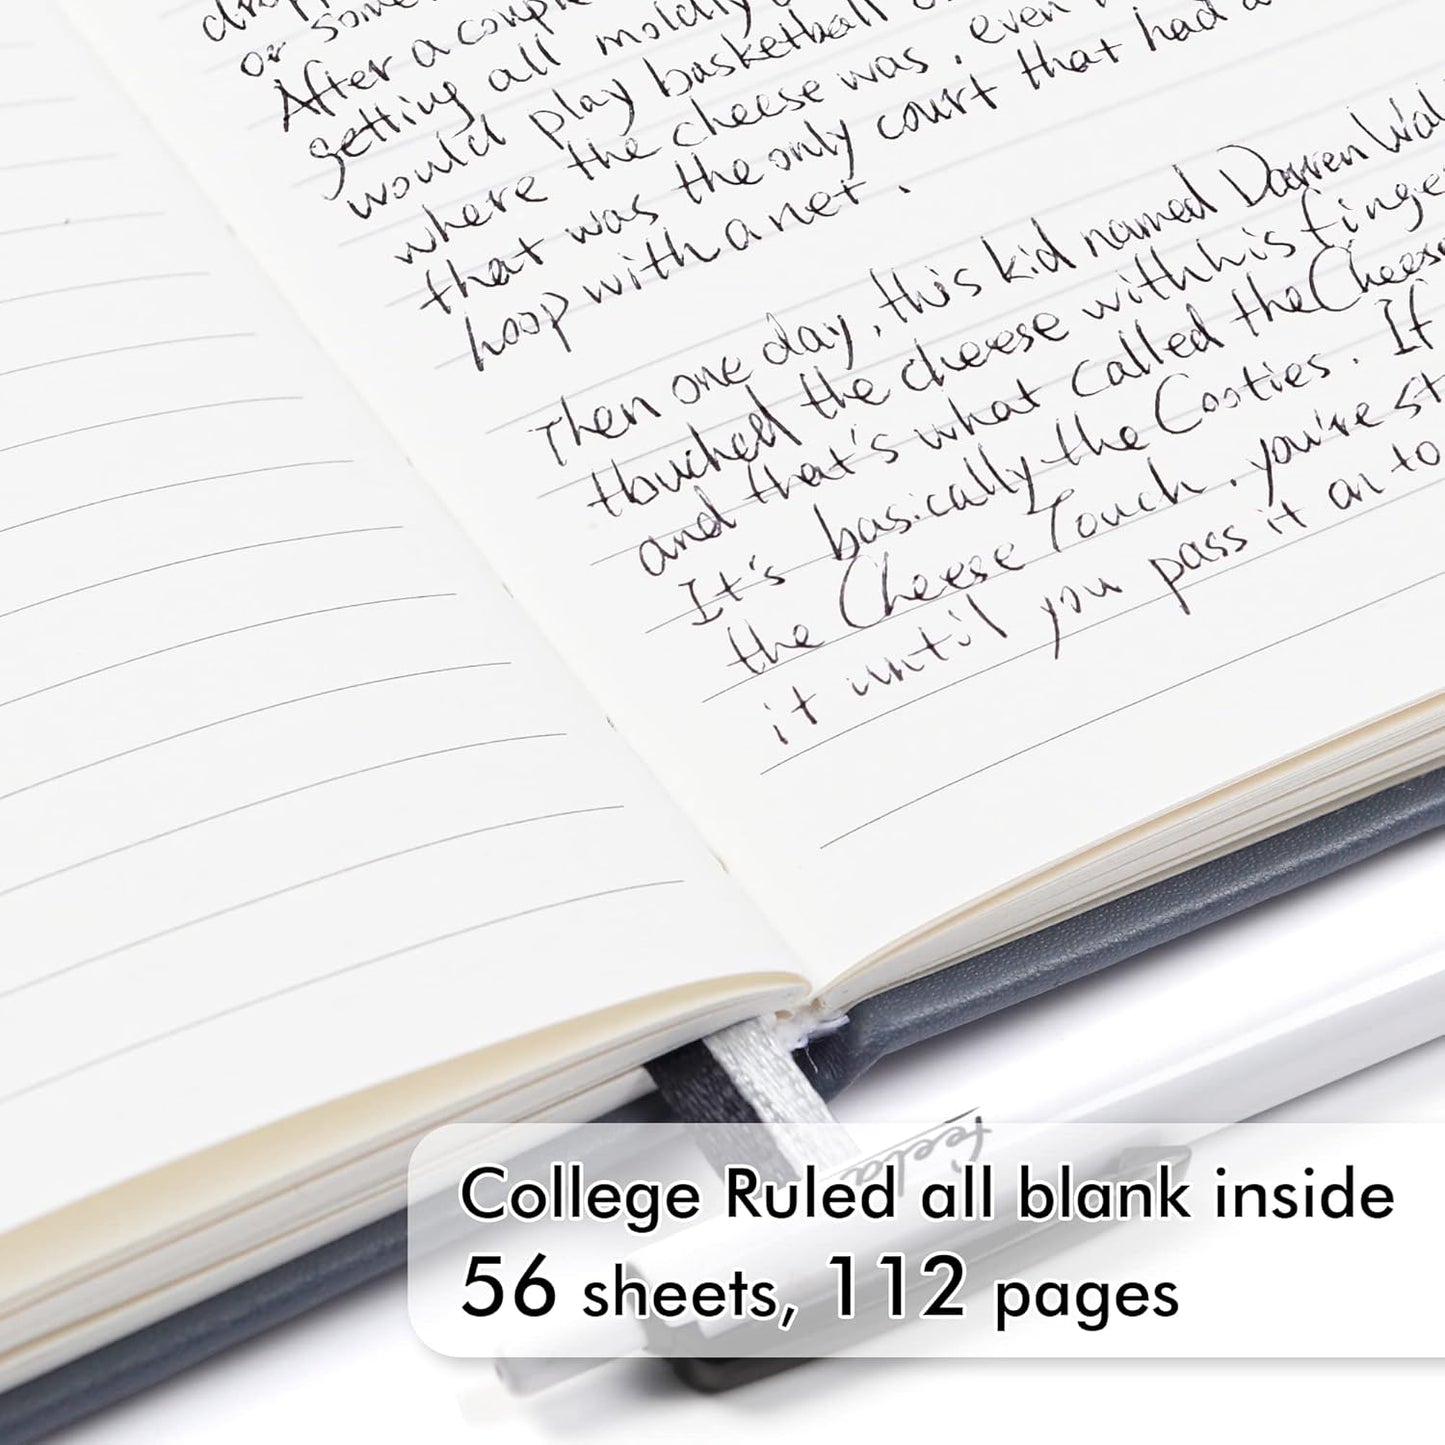 or some
After a couple
getting all moldy
would play basketball
where the cheese was, even
that was the only court that had a
hoop with a net.
Then one day, this kid named Darren Wal
touched the cheese with his finger
and that's what called the Cheese
It's basically the Cooties. If
the Cheese Touch, you're st
it until you pass it on to
feela
College Ruled all blank inside
56 sheets, 112 pages